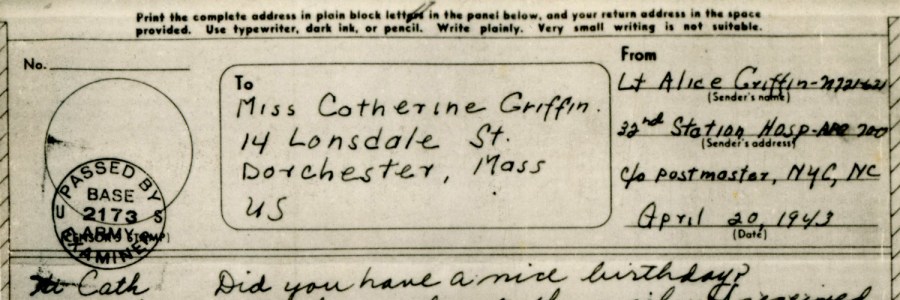 Print the complete address in plain block letters in the panel below, and your return address in the space
provided. Use typewriter, dark ink, or pencil. Write plainly. Very small writing is not suitable.
No.
To
Miss Catherine Griffin.
14 Lonsdale St.
Dorchester, Mass
US
From
Lt Alice Griffin-N721621
(Sender's name)
32nd Station Hosp-APO 700
(Sender's address)
c/o Postmaster, NYC, NC
April 20, 1943
(Date)
PASSED BY
BASE
U 2173 S
ARMY
EXAMINER
(CENSOR'S STAMP)
Cath Did you have a nice birthday?